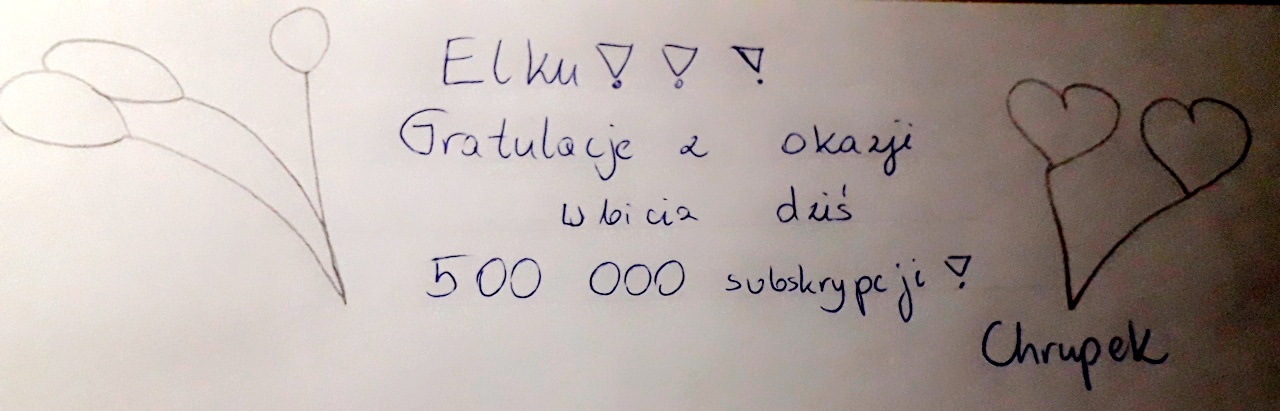 Elku!!!
Gratulacje z okazji
wbicia dziś
500 000 subskrypcji!
Chrupek